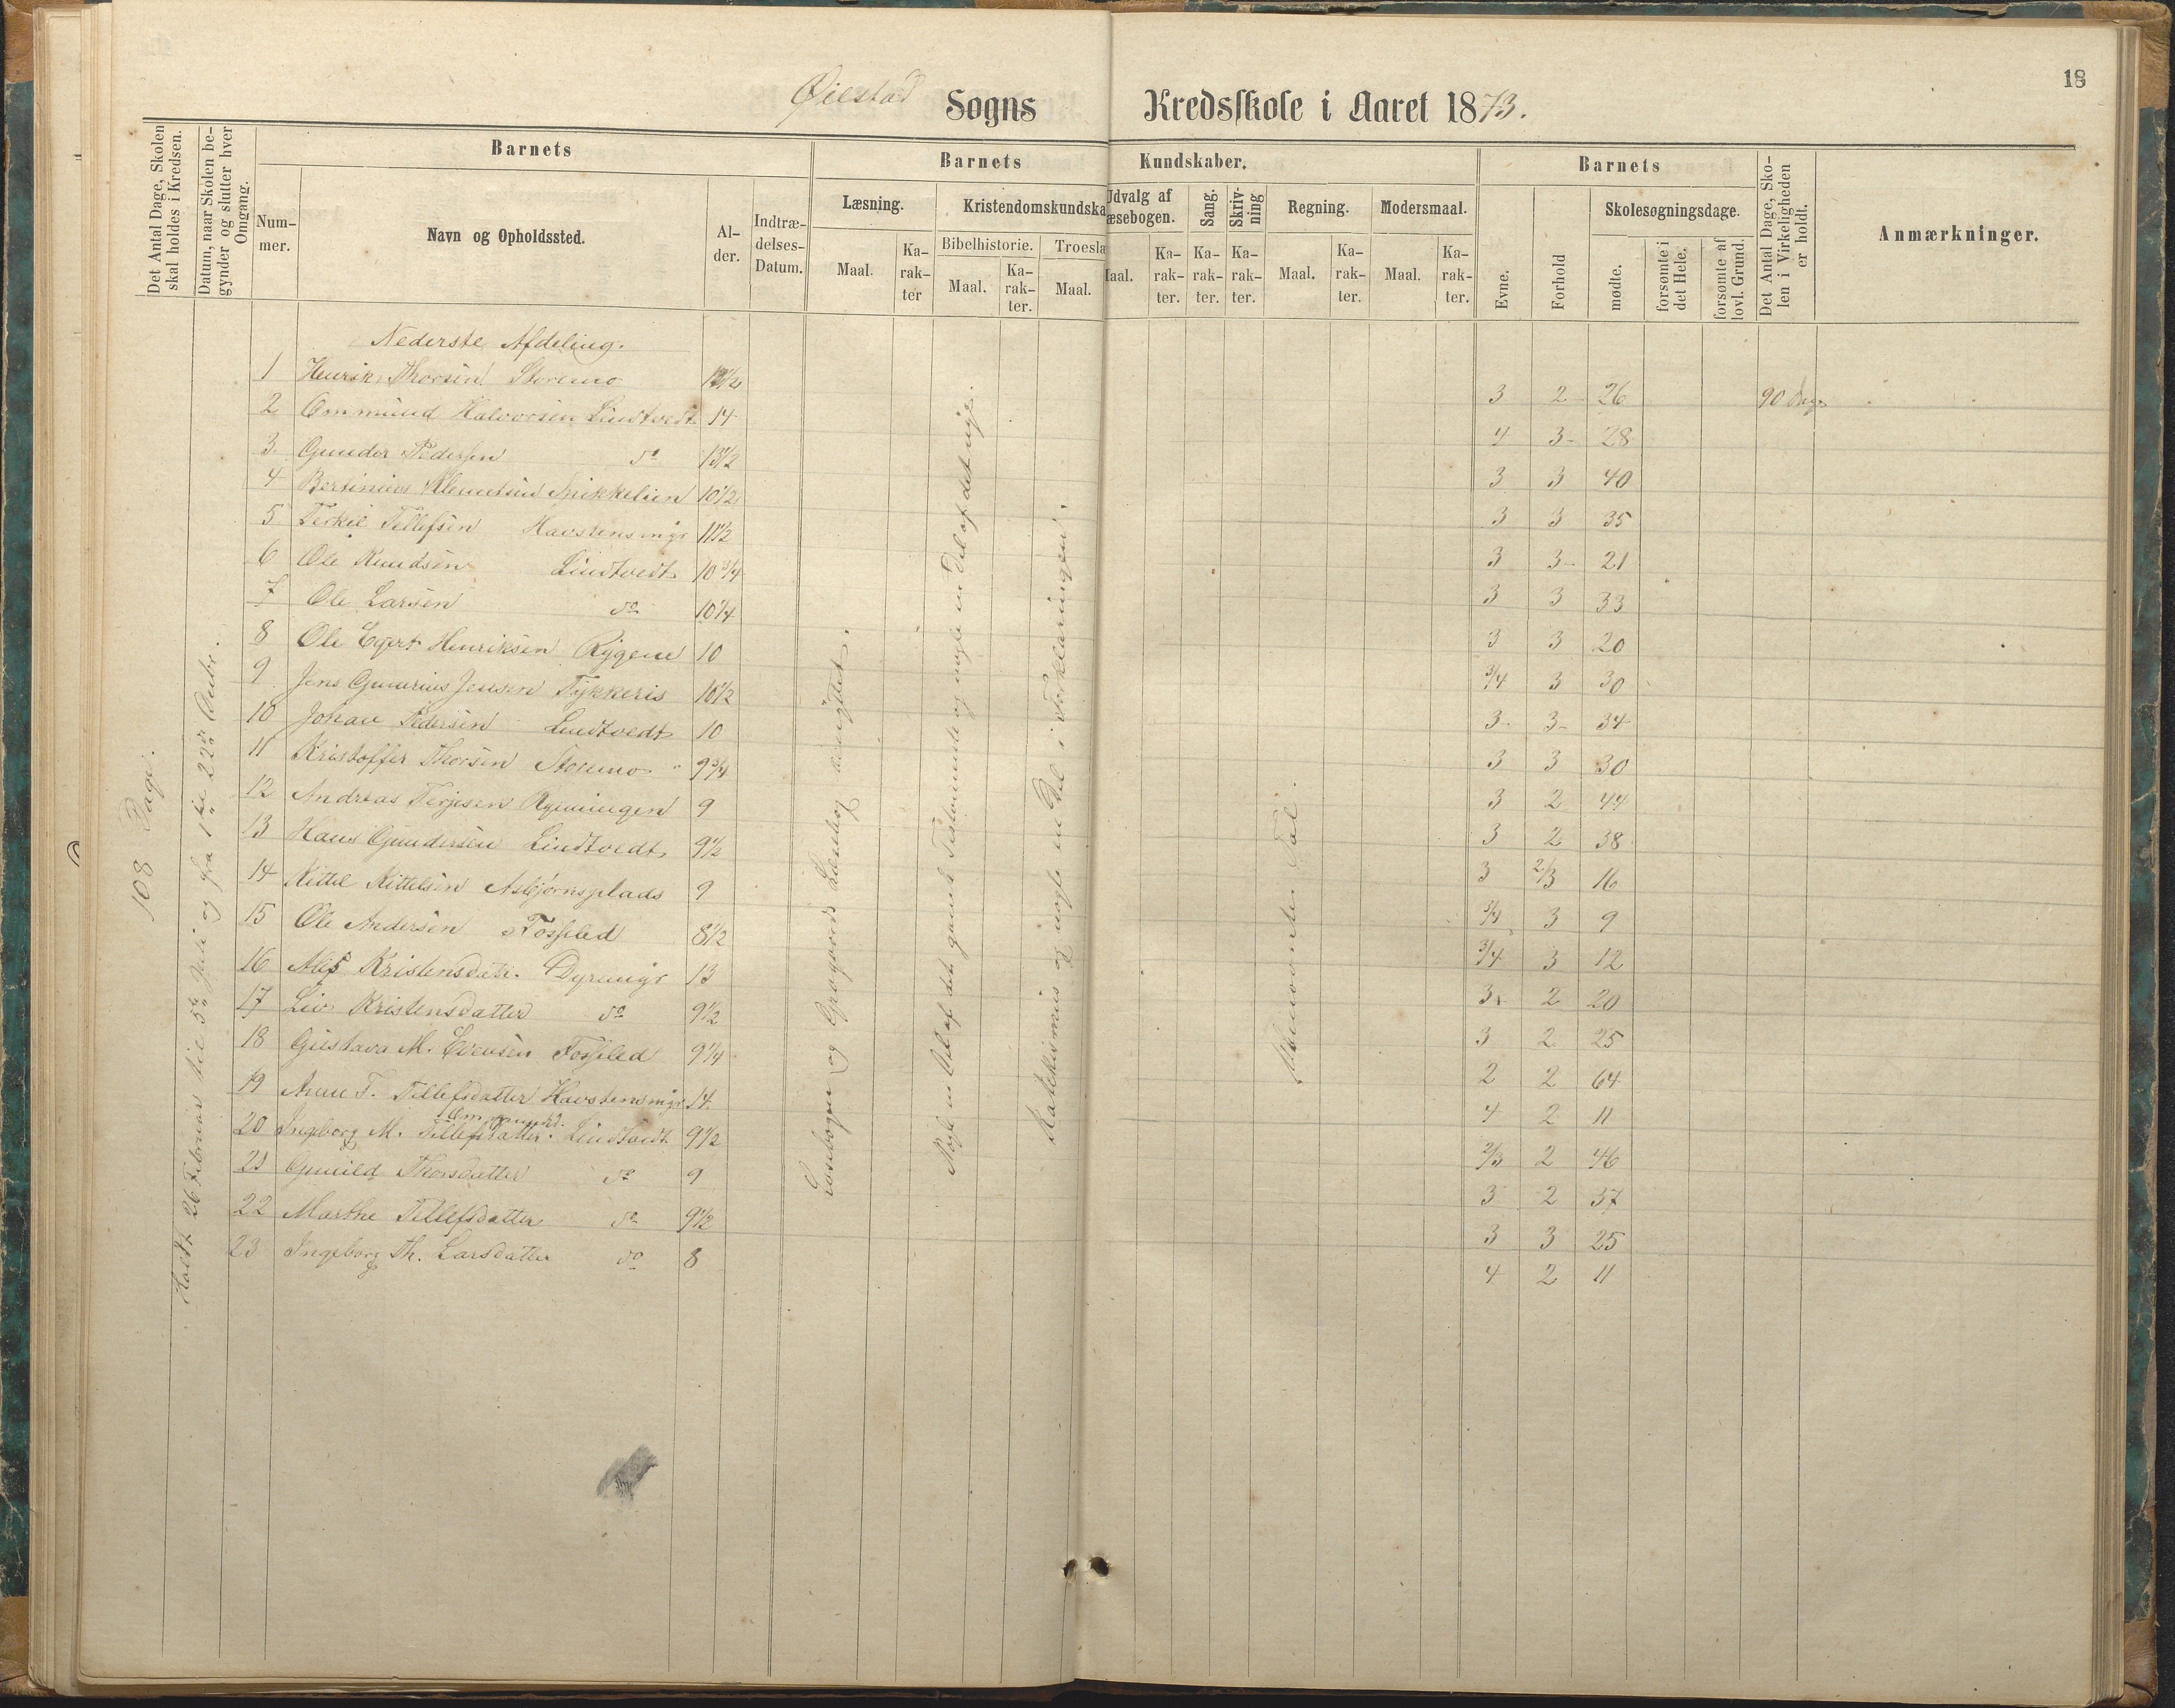 18
Øiestad Sogns Kredsskole i Aaret 1873.
Det Antal Dage, Skolen skal holdes i Kredsen.
Datum, naar Skolen begynder og slutter hver Omgang.
Barnets
Nummer.
Navn og Opholdssted.
Alder.
Indtrædelses-Datum.
Barnets Kundskaber.
Læsning.
Maal.
Karakter
Kristendomskundska
Bibelhistorie.
Maal.
Karakter.
Troesla
Maal.
Udvalg af
æsebogen.
Maal.
Karakter.
Sang.
Karakter.
Skrivning
Karakter.
Regning.
Maal.
Karakter.
Modersmaal.
Maal.
Karakter.
Barnets
Evne.
Forhold
Skolesøgningsdage.
mødte.
forsømte i det Hele.
forsømte af lovl. Grund.
Det Antal Dage, Skolen i Virkeligheden er holdt.
Anmærkninger.
108 Dage.
Holdt 26 Februar til 5te Juli og fra 1ste 22de Octbr.
Nederste Afdeling.
1 Henrik Thorsen Storemo 3 2 26 90 Dage
2 Ommund Halvorsen Lindtvedt 14 4 3- 28
3 Gunder Pedersen do 13 1/2 3 3 40
4 Bertinius Klemetsen Snikkelien 10 1/2 3 3 35
5 Terkil Tellefsen Havstensmyr 11 1/2 3 3- 21
6 Ole Knudsen Lindtvedt 10 3/4 3 3 33
7 Ole Larsen do 10 1/4 3 3 20
8 Ole Egert Henriksen Rygene 10 3/4 3 30
9 Jens Gunerius Jensen Tykkeris 10 1/2 3- 3- 34
10 Johan Pedersen Lindtvedt 10 3 3 30
11 Kristoffer Thorsen Storemo 9 3/4 3 2 44
12 Andreas Terjesen Rynningen 9 3 2 38
13 Hans Gundersen Lindtvedt 9 1/2 3 2/3 16
14 Kittel Kittelsen Asbjørnsplads 9 3/4 3 9
15 Ole Andersen Fossled 8 1/2 3/4 3 12
16 Kristensdatr. Dyremyr 13 3 2 20
17 Liv Kristensdatter do 9 1/2 3 2 25
18 Gustava M. Evensen Fossled 9 1/4 2 2 64
19 Anne T. Tellefsdatter Havstensmyr 14 4 2 11
20 Ingeborg M. Tellefsdatter. Lindtvedt 9 1/2 2/3 2 46
Ommunsd.
21 Gunild Thorsdatter do 9 3 2 37
22 Marthe Tellefsdatter do 9 1/2 3 3 25
23 Ingeborg Th. Larsdatter do 8 4 2 11
Læsebogen og Grøgaards Lærebog benyttet.
Nogle en Del af det gamle Testamente og nogle en Del af det nye.
Katekismus og nogle en Del i Forklaringen.
Ubenævnte Tal.